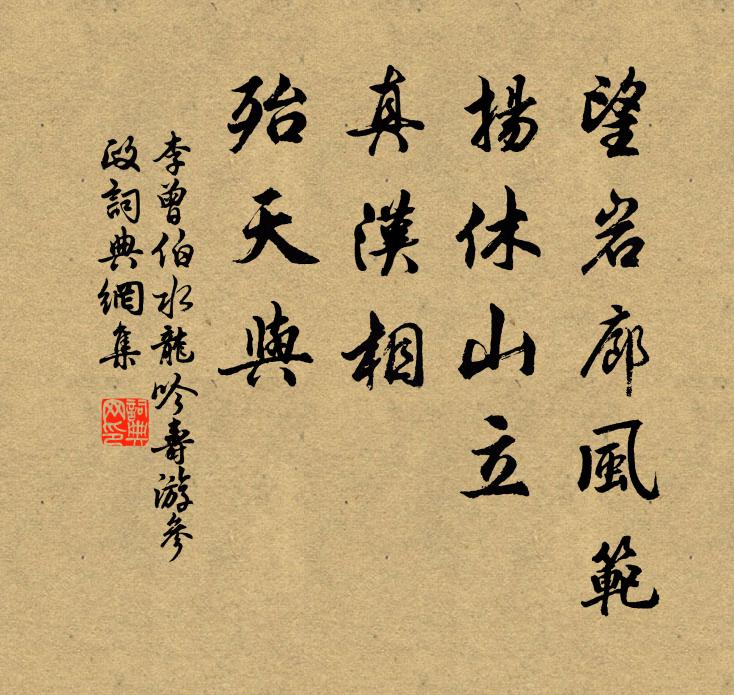 望岩廊風範
揚休山立
真漢相
殆天與
李曾伯水龍吟壽游參
政詞典網集
詞典网印